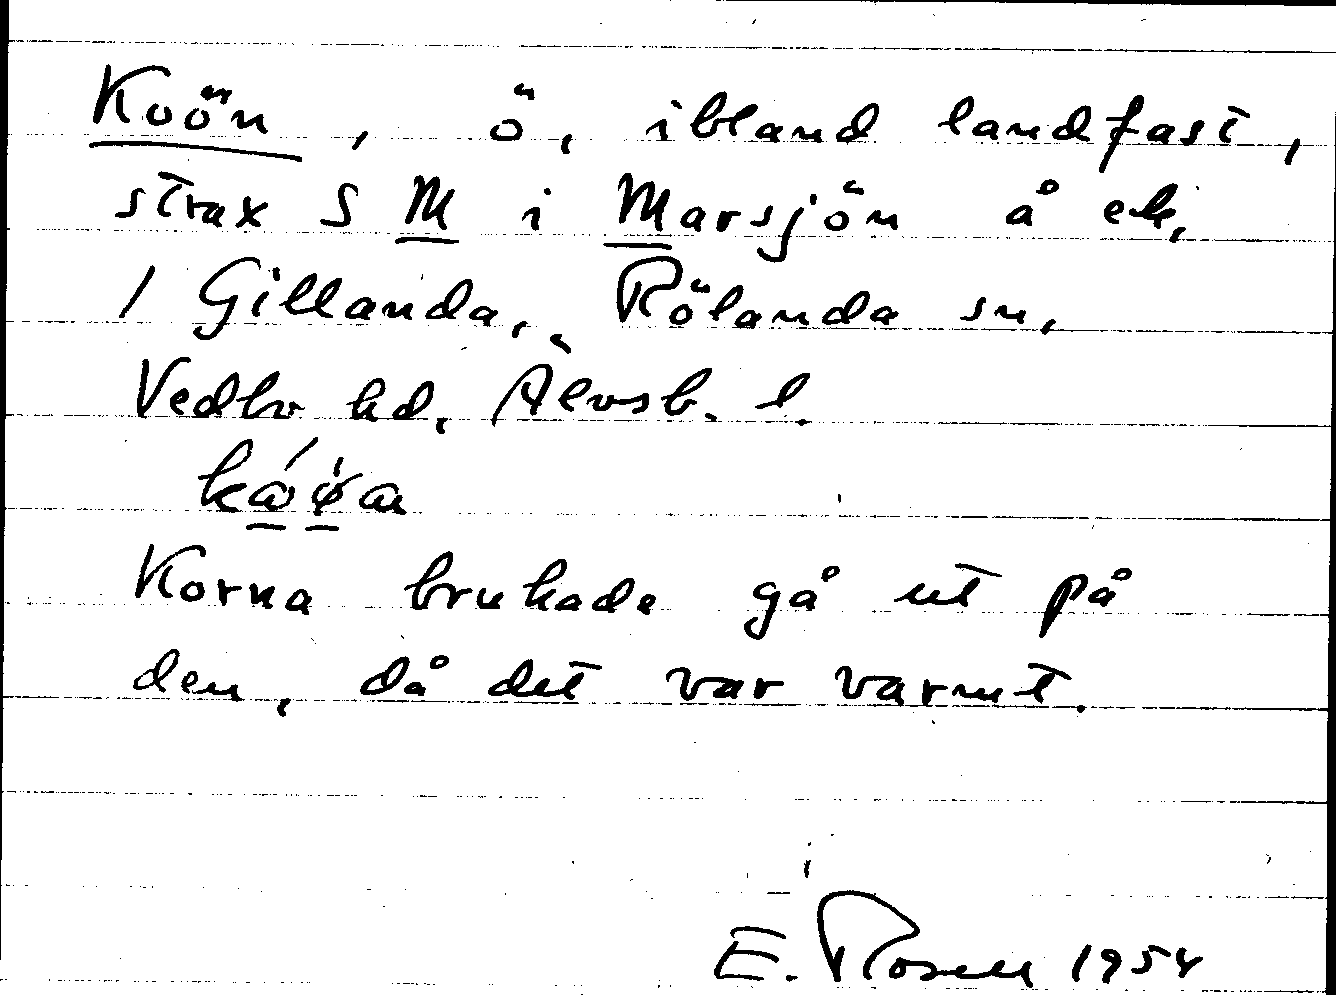 Koön, ö, ibland landfast,
strax S M i Marsjön å ek,
1 Gillanda, Rölanda sn,
Vedbo hd, Älvsb. l.
Korna brukade gå ut på
den, då det var varmt.
E. Rosell 1954